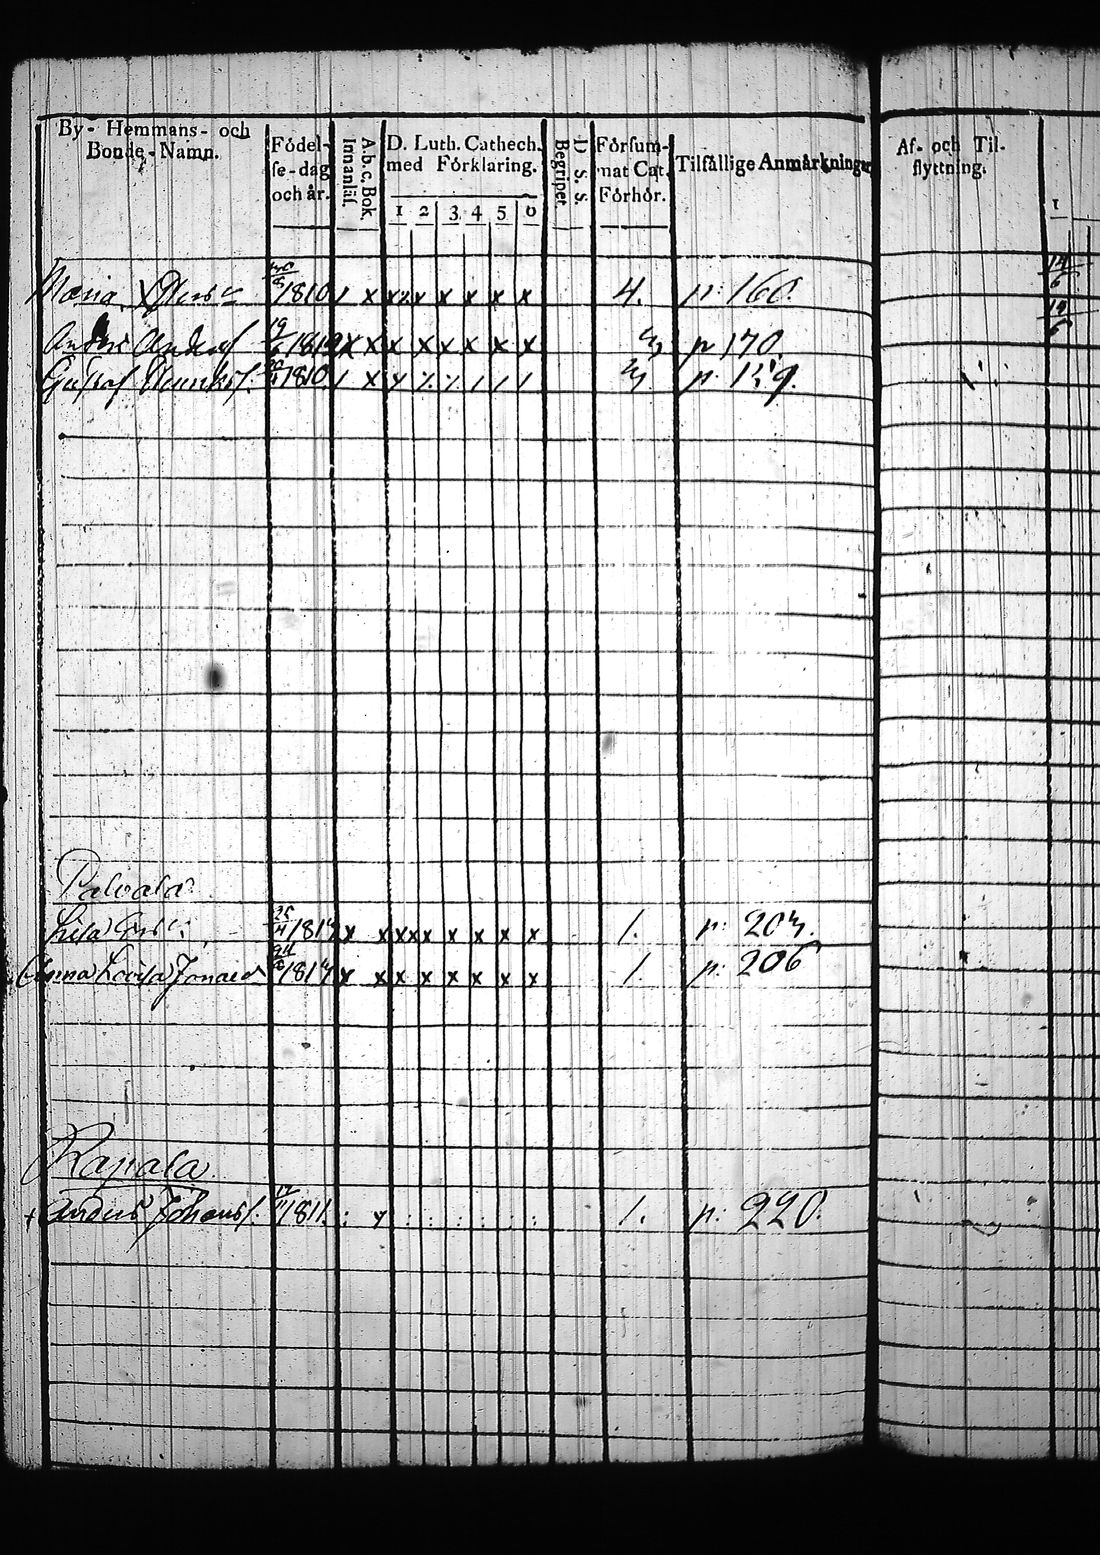 By- Hemmans- och
Bonde-Namn.
Födel-
se-dag
och år.
A.b.c. Bok.
Innanläs.
D. Luth. Cathech.
med Förklaring.
1 2 3 4 5 6
D. S. S.
Begripet
Försum-
nat Cat.
Förhör.
Tilfällige Anmärkningar
Af- och Til-
flyttning.
1
Maria 1810 / x x x x x x x 4. p. 160.
Anders Anders. 1812 x x x x x x x x 3 p 170
Gustaf 1810 / x 3 p. 159.
14
6
14
6
Palvala
Lisa 25 1817 x x x x x x x x 1. p: 203.
Anna Lovisa Jonaed. 24 1817 x x x x x x x x 1. p: 206
Rapala
+ Anders Johanss. 17 1811. : 1. p: 220.